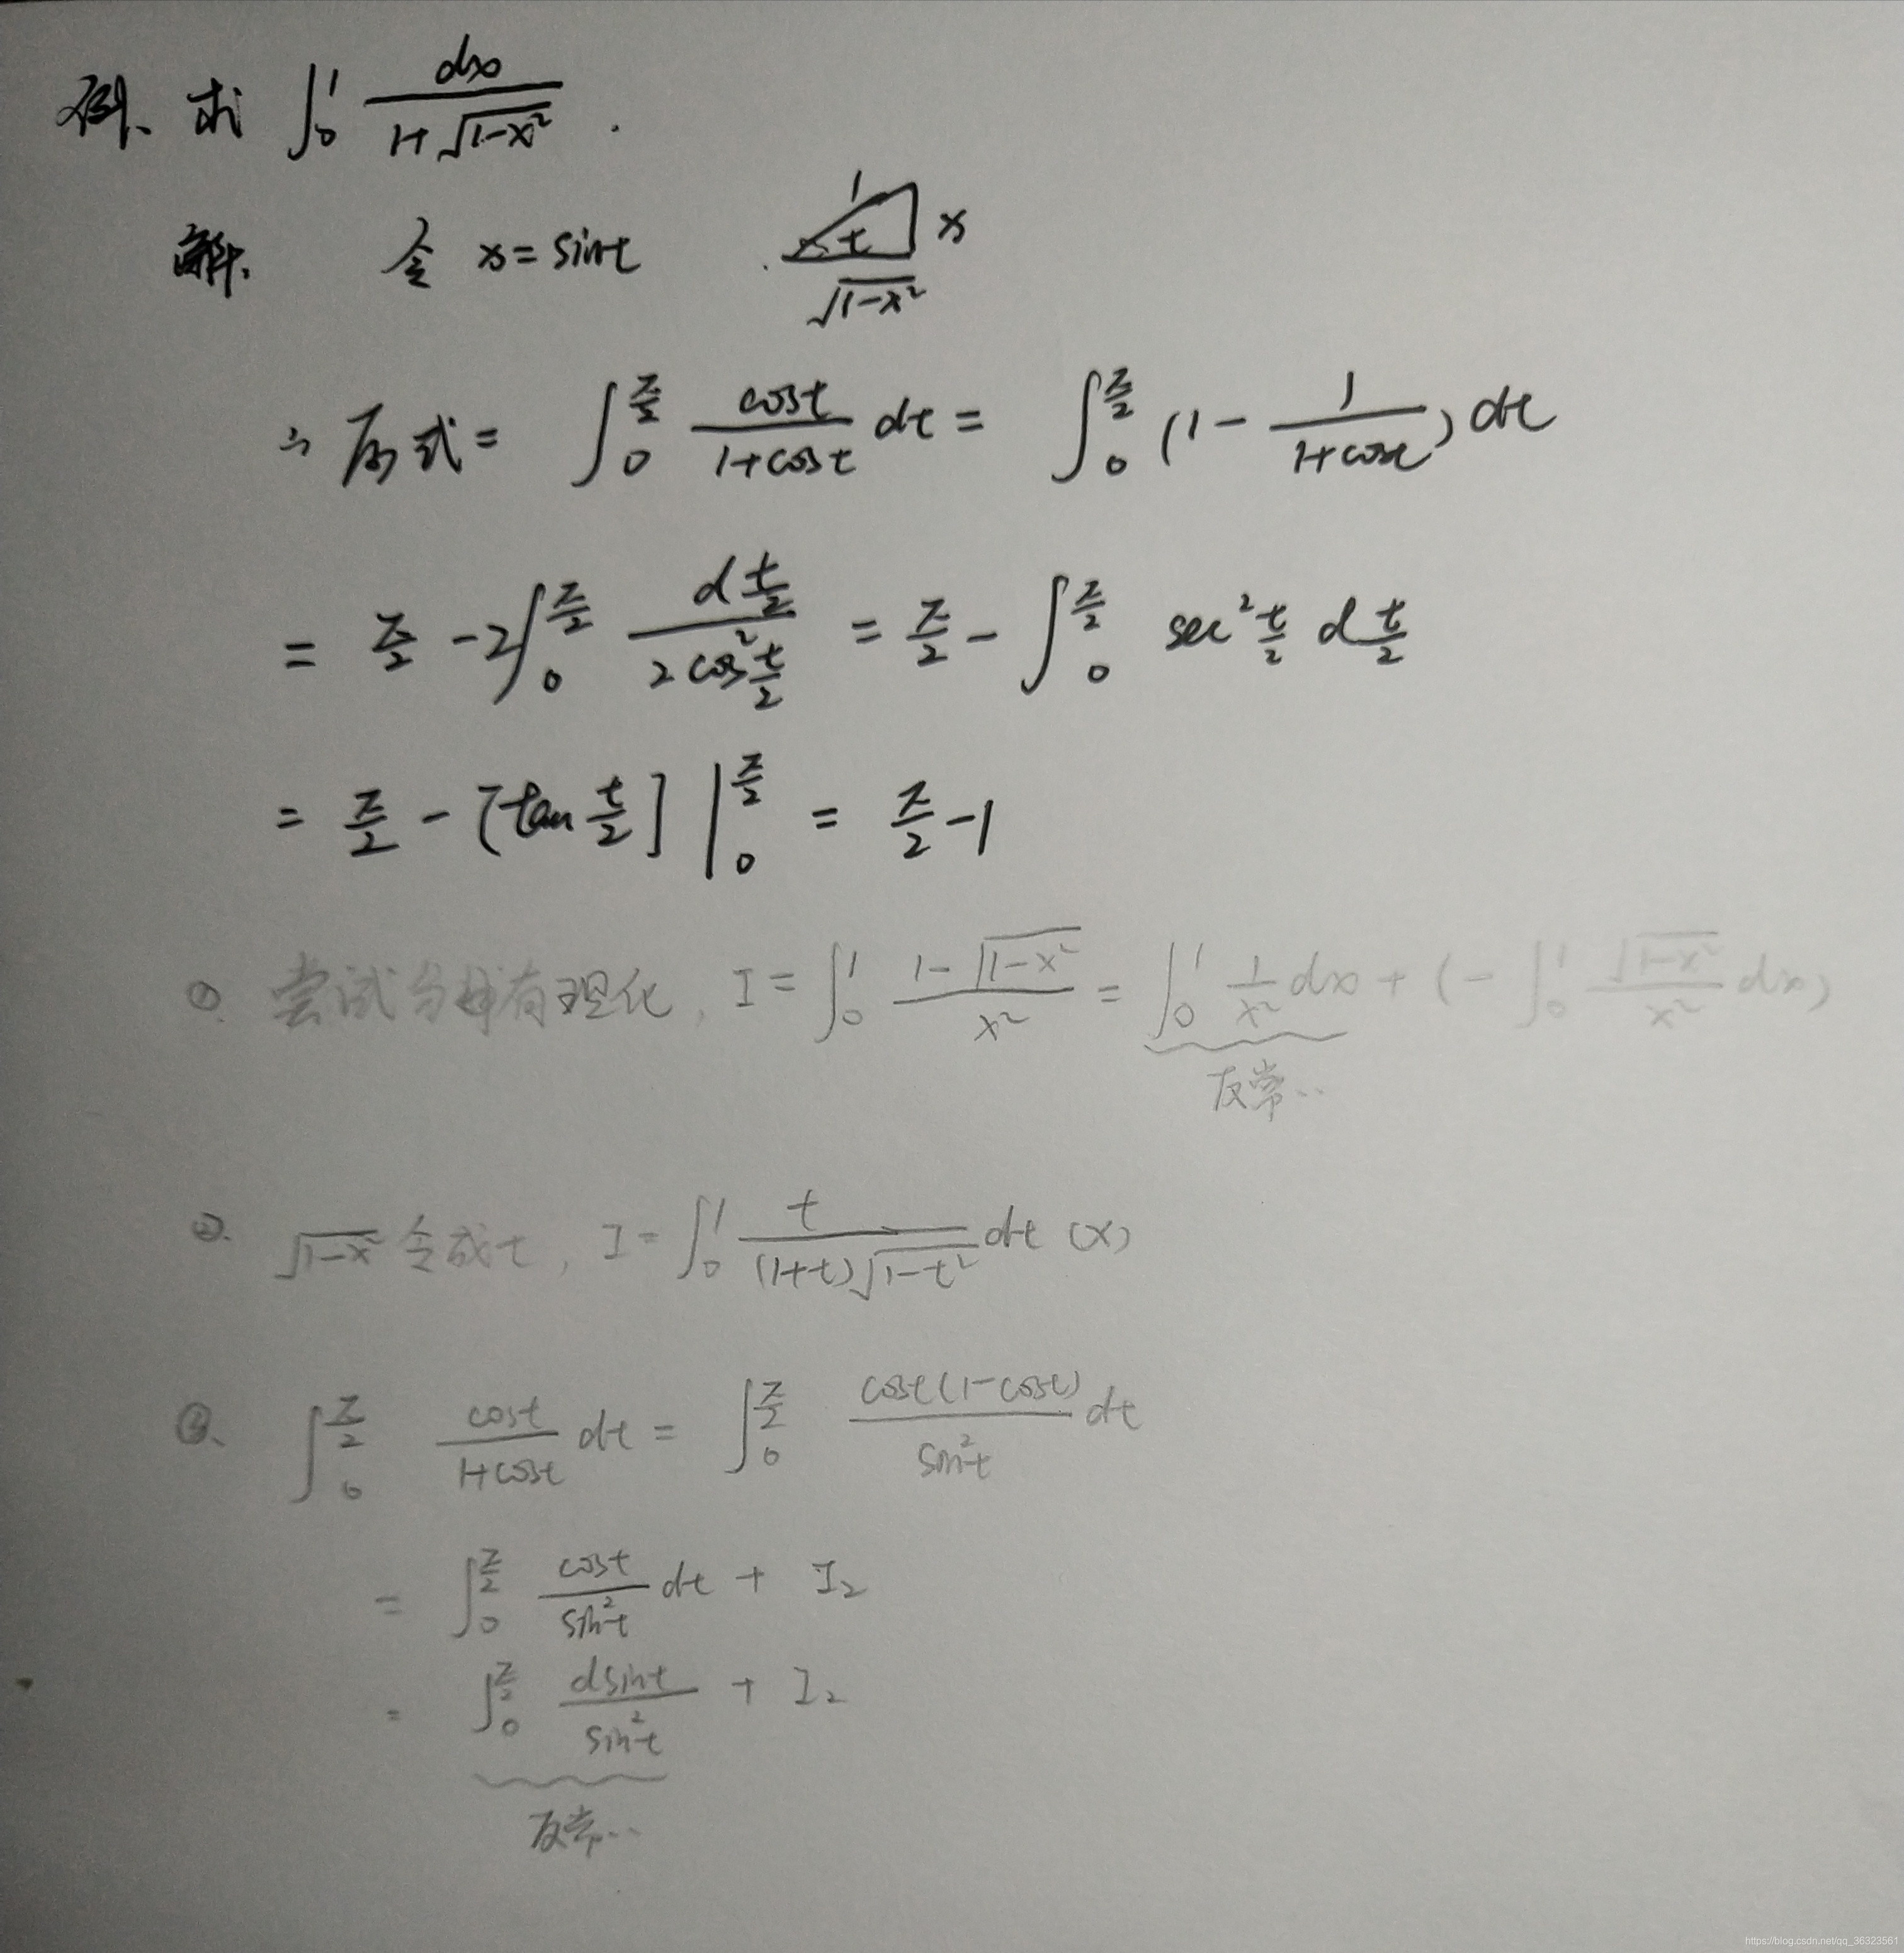 例、求 ∫₀¹ dx/(1+√(1-x²)) .
解、 令 x = sint 1 t x √(1-x²)
∴ 原式 = ∫₀^(π/2) cost/(1+cost) dt = ∫₀^(π/2) (1 - 1/(1+cost)) dt
= π/2 - 2∫₀^(π/2) d(t/2)/(2cos²(t/2)) = π/2 - ∫₀^(π/2) sec²(t/2) d(t/2)
= π/2 - [tan(t/2)] |₀^(π/2) = π/2 - 1
①. 尝试分母有理化, I = ∫₀¹ (1-√(1-x²))/x² = ∫₀¹ 1/x² dx + (- ∫₀¹ √(1-x²)/x² dx)
反常...
②. √(1-x²) 令成 t, I = ∫₀¹ t/((1+t)√(1-t²)) dt (×)
③、 ∫₀^(π/2) cost/(1+cost) dt = ∫₀^(π/2) cost(1-cost)/sin²t dt
= ∫₀^(π/2) cost/sin²t dt + I₂
= ∫₀^(π/2) dsint/sin²t + I₂
反常...
https://blog.csdn.net/qq_36323561